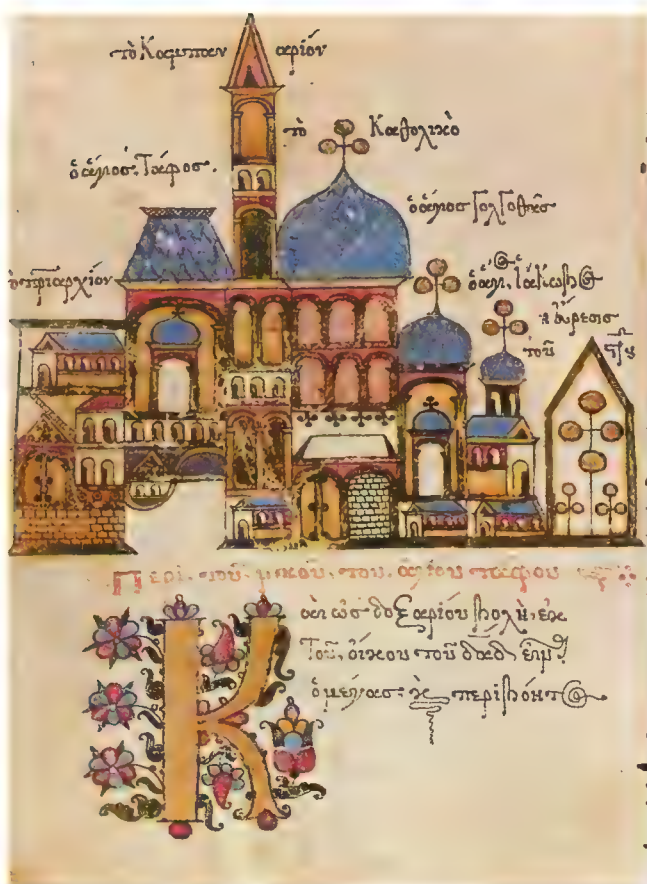 τὸ Καμπαναρίόν
τὸ Καθολικὸ
ὁ ἅγιος Τάφος.
ὁ ἅγιος Γολγοθᾶς
τὸ πατριαρχίον
ὁ ἅγι. Ἰάκωβος
ἡ εὕρεσις
τοῦ στ̅υ̅
Περὶ τοῦ ναοῦ τοῦ ἁγίου τάφου
Καὶ ὡς δοξαρίου βολὴ, ἐκ
τοῦ, οἴκου τοῦ δα̅δ̅,
ὁ μέγας, κ̀ περιβόητος